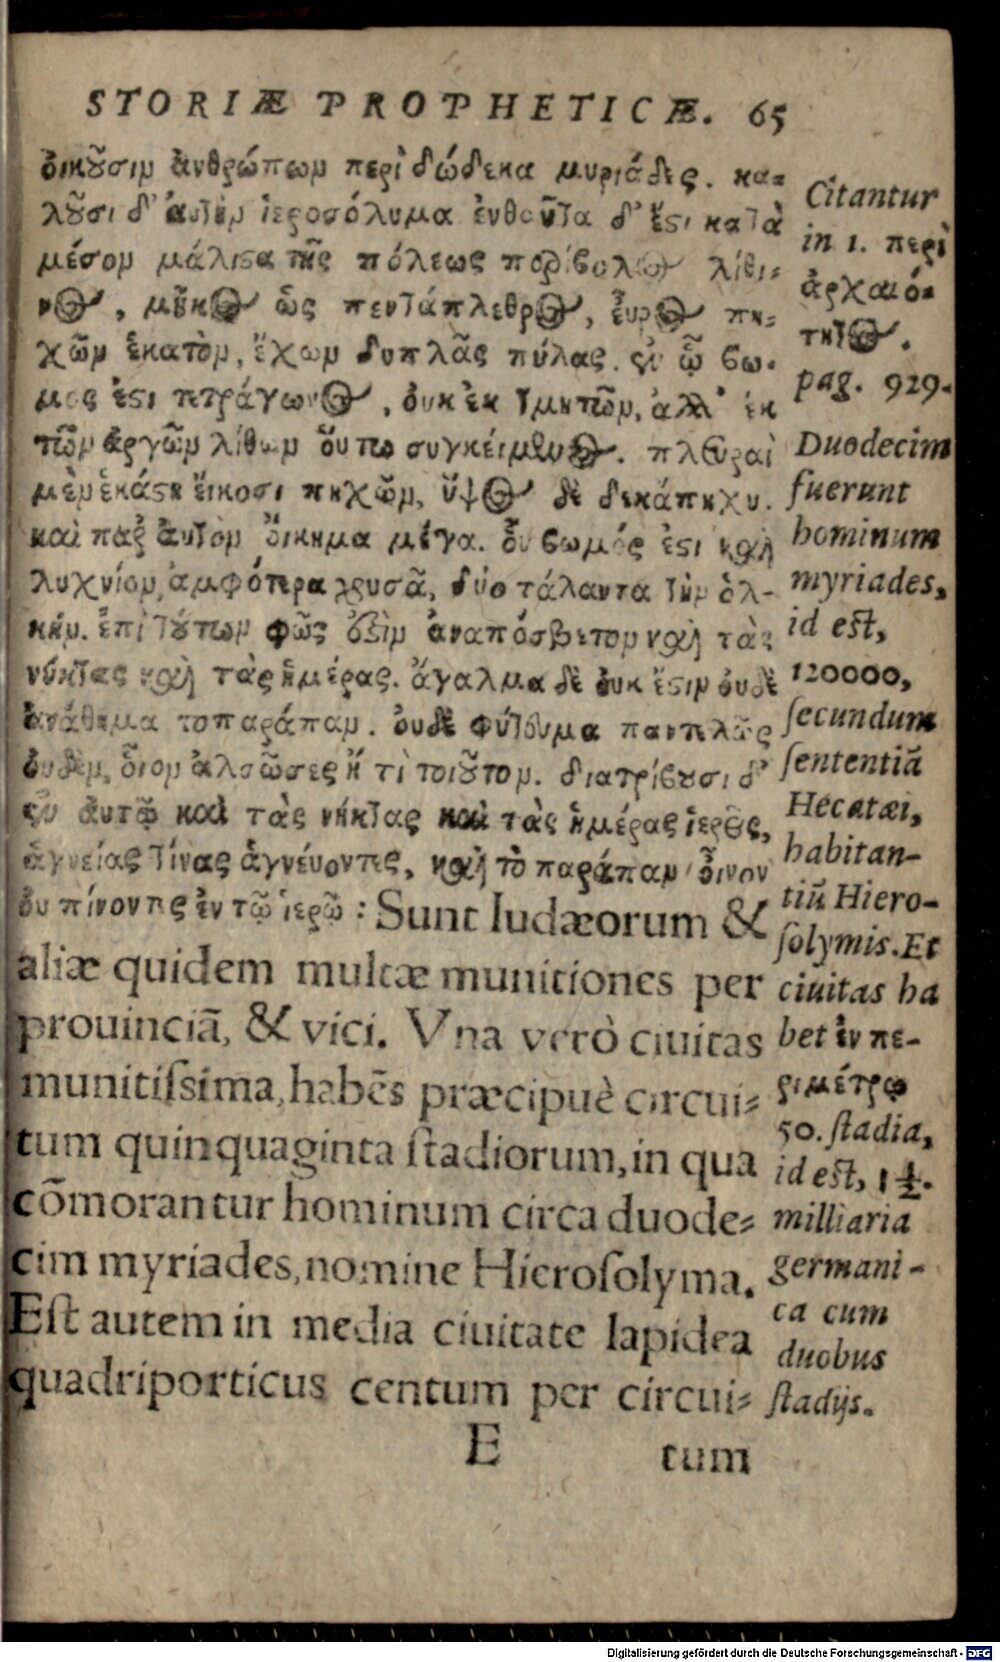 STORIÆ PROPHETICÆ. 65
ὀικοῦσιμ ἀνθρώπωμ περὶ δώδεκα μυριάδες. κα-
λοῦσι δ' ἀυτὴμ ἱεροσόλυμα ἐνθαῦτα δ' ἔστι κατὰ
μέσομ μάλιστα τῆς πόλεως περίβολος λίθι-
νος, μῆκος ὡς πεντάπλεθρος, ἔυρος πη-
χῶμ ἑκατὸμ, ἔχωμ δυπλᾶς πύλας. ἐν ᾧ βω-
μος ἐστι τετράγωνος, ὀυκ ἐκ τμητῶμ, ἀλλ' ἐκ
τῶμ ἀργῶμ λίθωμ ὅυτω συγκέιμενος. πλευραὶ
μὲμ ἑκάστη ἔικοσι πηχῶμ, ὕψος δὲ δεκάπηχυ.
καὶ παρ ἀυτὸμ ὄικημα μέγα. οὗ βωμός ἐστι καὶ
λυχνίομ, ἀμφότερα χρυσᾶ, δύο τάλαντα τὴμ ὁλ-
κήμ. ἐπὶ τούτωμ φῶς ἐστὶμ ἀναπόσβετομ καὶ τὰς
νύκτας καὶ τὰς ἡμέρας. ἄγαλμα δὲ ὀυκ ἔστιμ ὀυδὲ
ἀνάθημα τοπαράπαμ. ὀυδὲ φύτευμα παντελῶς
ὀυδὲμ, οἷομ ἀλσῶδες ἤ τὶ τοιοῦτομ. διατρίβουσι δ'
ἐν ἀυτῷ καὶ τὰς νύκτας καὶ τὰς ἡμέρας ἱερεῖς,
ἁγνείας τίνας ἁγνέυοντες, καὶ τὸ παράπαμ οἶνον
ὀυ πίνοντες ἐν τῷ ἱερῷ : Sunt Iudæorum &
aliæ quidem multæ munitiones per
prouinciã, & vici. Vna verò ciuitas
munitissima, habẽs præcipuè circui-
tum quinquaginta stadiorum, in qua
cõmorantur hominum circa duode-
cim myriades, nomine Hierosolyma.
Est autem in media ciuitate lapidea
quadriporticus centum per circui-
E tum
Citantur
in 1. περὶ
ἀρχαιό-
τητος.
pag. 929.
Duodecim
fuerunt
hominum
myriades,
id est,
120000,
secundum
sententiã
Hecatæi,
habitan-
tiũ Hiero-
solymis. Et
ciuitas ha
bet ἐν πε-
ριμέτρῳ
50. stadia,
id est, 1 1/2.
milliaria
germani-
ca cum
duobus
stadijs.
Digitalisierung gefördert durch die Deutsche Forschungsgemeinschaft - DFG